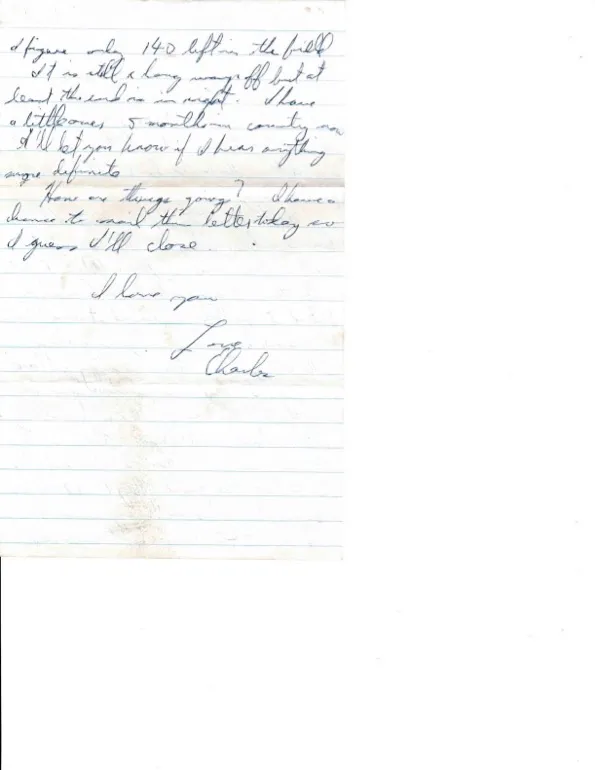 I figure only 140 left in the field
It is still a long ways off but at
least the end is in sight. I have
a little over 5 months in country now
I'll let you know if I hear anything
more definite
How are things going? I have a
chance to mail this letter today so
I guess I'll close.
I love you
Love
Charles